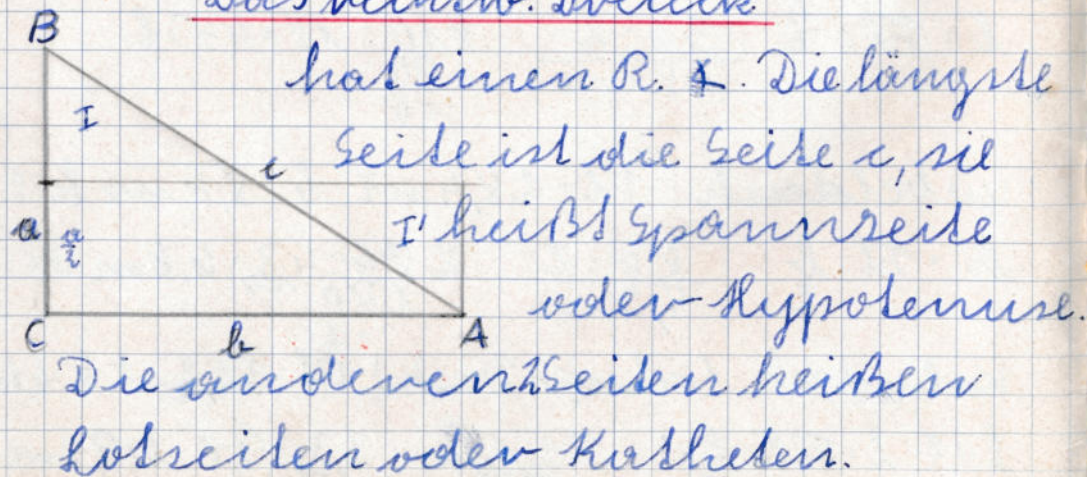 Das rechtw. Dreieck
B
hat einen R. ∡. Die längste
I
Seite ist die Seite c, sie
c
a a/2 I' heißt Spannseite
oder Hypotenuse.
C b A
Die anderen 2 Seiten heißen
Lotseiten oder Katheten.